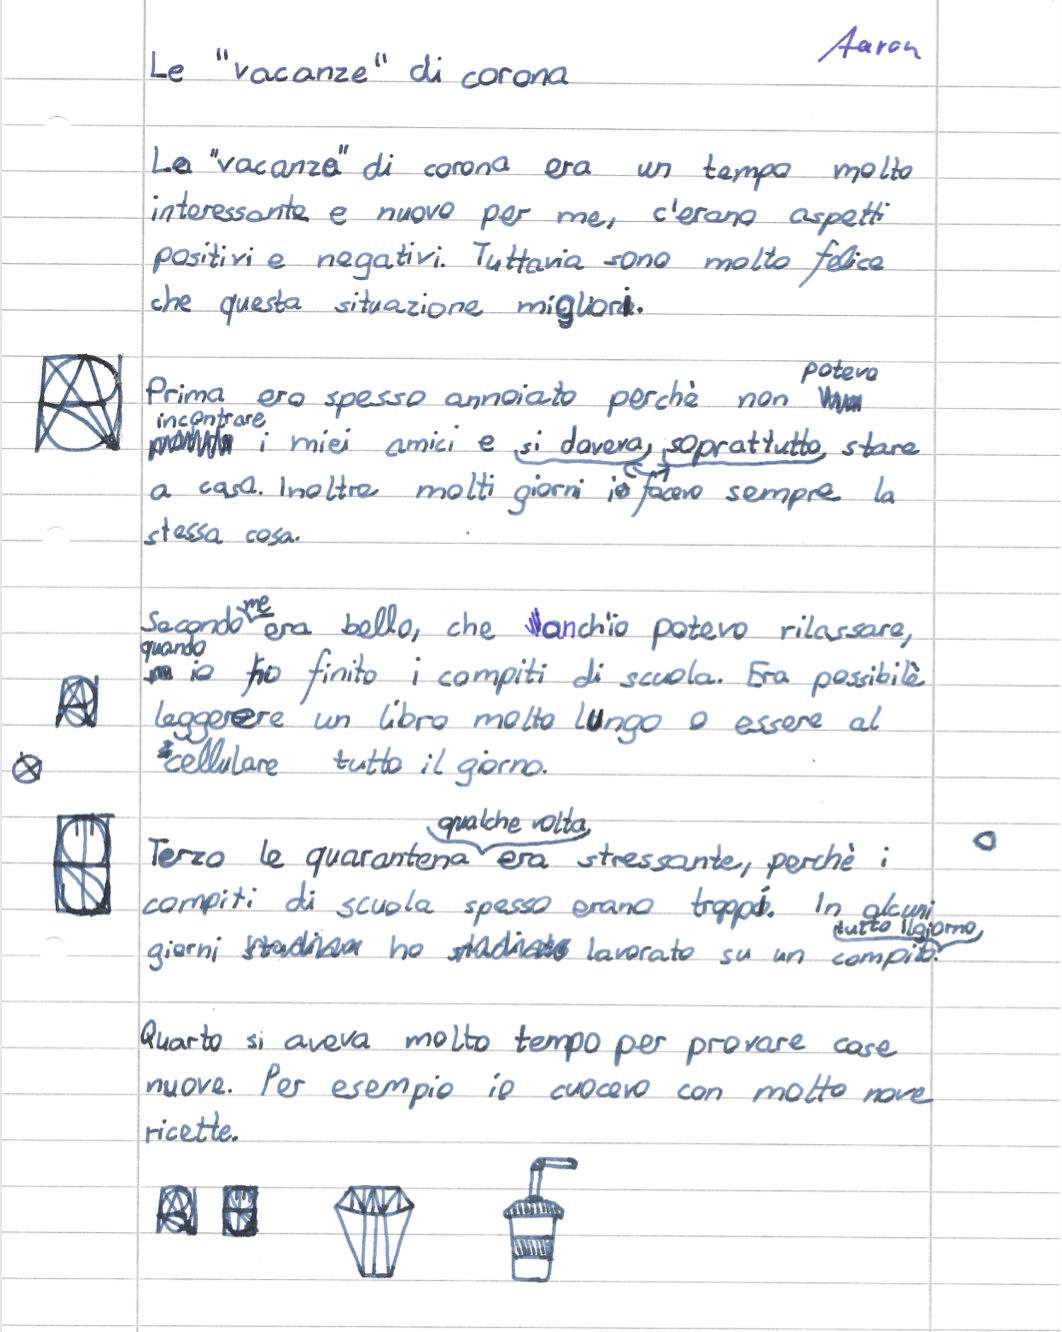 Aaron
Le "vacanze" di corona
Le "vacanze" di corona era un tempo molto
interessante e nuovo per me, c'erano aspetti
positivi e negativi. Tuttavia sono molto felice
che questa situazione migliori.
potevo
Prima ero spesso annoiato perchè non
incontrare
i miei amici e si doveva, soprattutto, stare
a casa. Inoltre molti giorni io facevo sempre la
stessa cosa.
me
Secondo era bello, che anch'io potevo rilassare,
quando
io ho finito i compiti di scuola. Era possibilè
leggere un libro molto lungo o essere al
cellulare tutto il giorno.
qualche volta
Terzo le quarantena era stressante, perchè i
compiti di scuola spesso erano troppi. In alcuni
tutto il giorno
giorni ho lavorato su un compito.
Quarto si aveva molto tempo per provare case
nuove. Per esempio io cuocevo con molto nove
ricette.